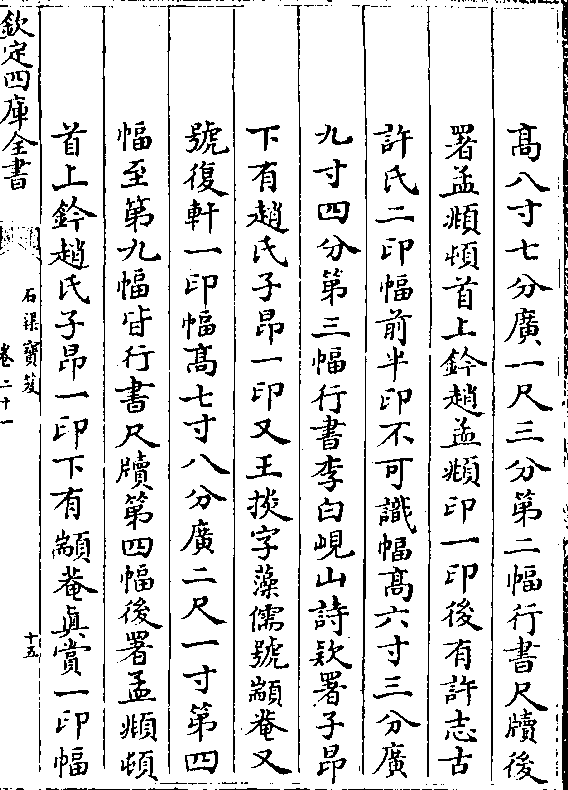 高八寸七分廣一尺三分第二幅行書尺牘後
署孟頫頓首上鈐趙孟頫印一印後有許志古
許氏二印幅前半印不可識幅高六寸三分廣
九寸四分第三幅行書李白峴山詩款署子昂
下有趙氏子昂一印又王掞字藻儒號顓菴又
號復軒一印幅高七寸八分廣二尺一寸第四
幅至第九幅皆行書尺牘第四幅後署孟頫頓
首上鈐趙氏子昂一印下有顓菴真賞一印幅
欽定四庫全書
石渠寶笈
卷二十一
十五